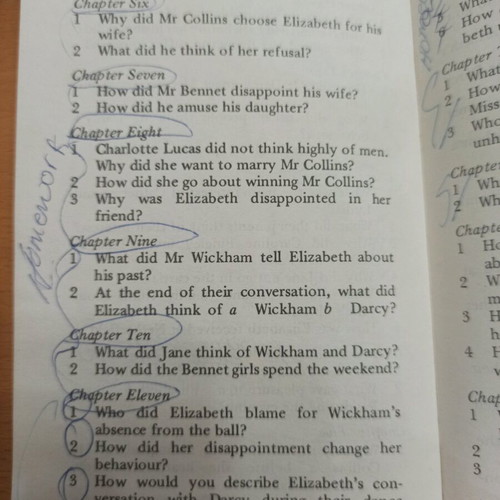 Chapter Six
1 Why did Mr Collins choose Elizabeth for his
wife?
2 What did he think of her refusal?
Chapter Seven
1 How did Mr Bennet disappoint his wife?
2 How did he amuse his daughter?
Chapter Eight
1 Charlotte Lucas did not think highly of men.
Why did she want to marry Mr Collins?
2 How did she go about winning Mr Collins?
3 Why was Elizabeth disappointed in her
friend?
Chapter Nine
1 What did Mr Wickham tell Elizabeth about
his past?
2 At the end of their conversation, what did
Elizabeth think of a Wickham b Darcy?
Chapter Ten
1 What did Jane think of Wickham and Darcy?
2 How did the Bennet girls spend the weekend?
Chapter Eleven
1 Who did Elizabeth blame for Wickham's
absence from the ball?
2 How did her disappointment change her
behaviour?
3 How would you describe Elizabeth's con-
versation with Darcy during their
How
beth
Chapter
1 What
2 How
Miss
3 Who
unh
Chapter
1 Wh
2 Wh
Chapte
1 Ho
ab
2 W
m
3 H
h
4 H
v
Chap
1
2
3